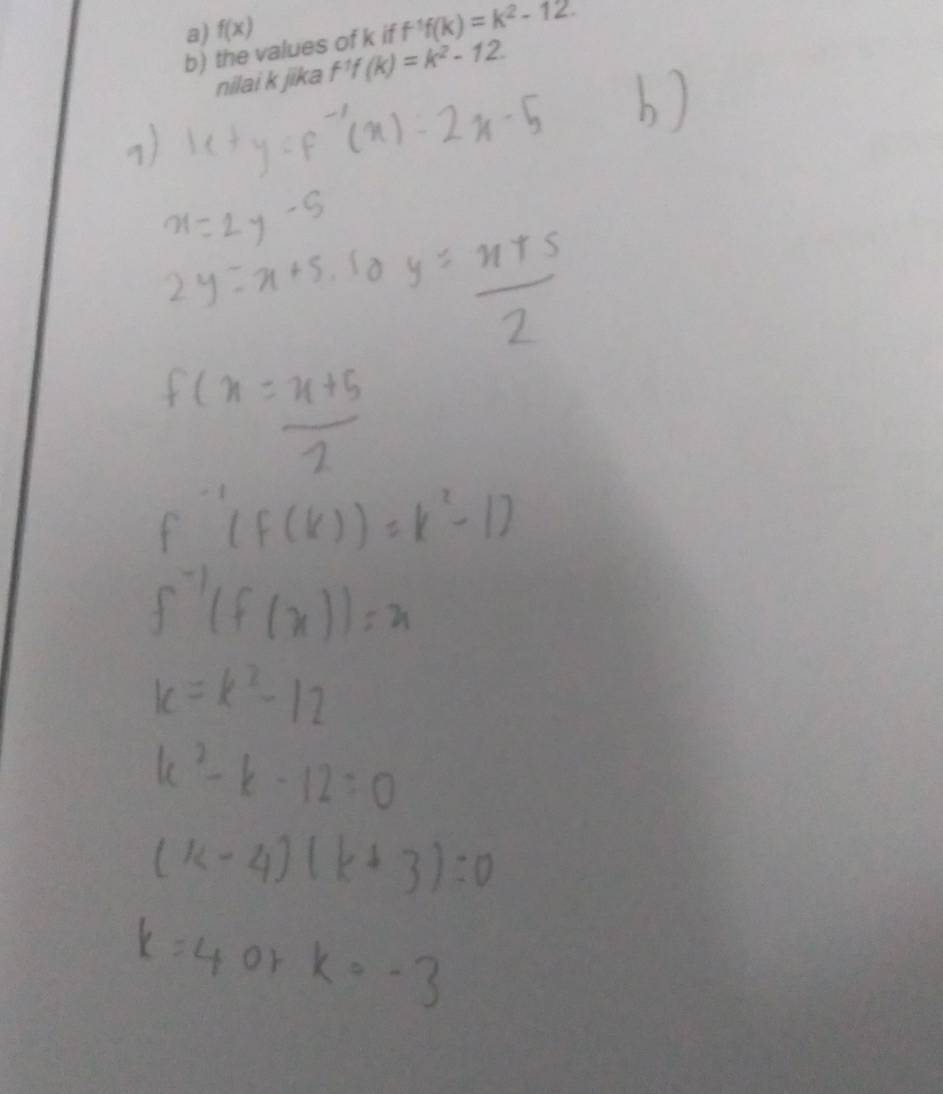 a) f(x)
b) the values of k if f⁻¹f(k) = k² - 12.
nilai k jika f⁻¹f (k) = k² - 12.
a) let y = f⁻¹(x) = 2x - 5
b)
x = 2y - 5
2y = x + 5. so y = (x + 5)/2
f(x = (x + 5)/2
f⁻¹(f(k)) = k² - 12
f⁻¹(f(x)) = x
k = k² - 12
k² - k - 12 = 0
(k - 4)(k + 3) = 0
k = 4 or k = -3